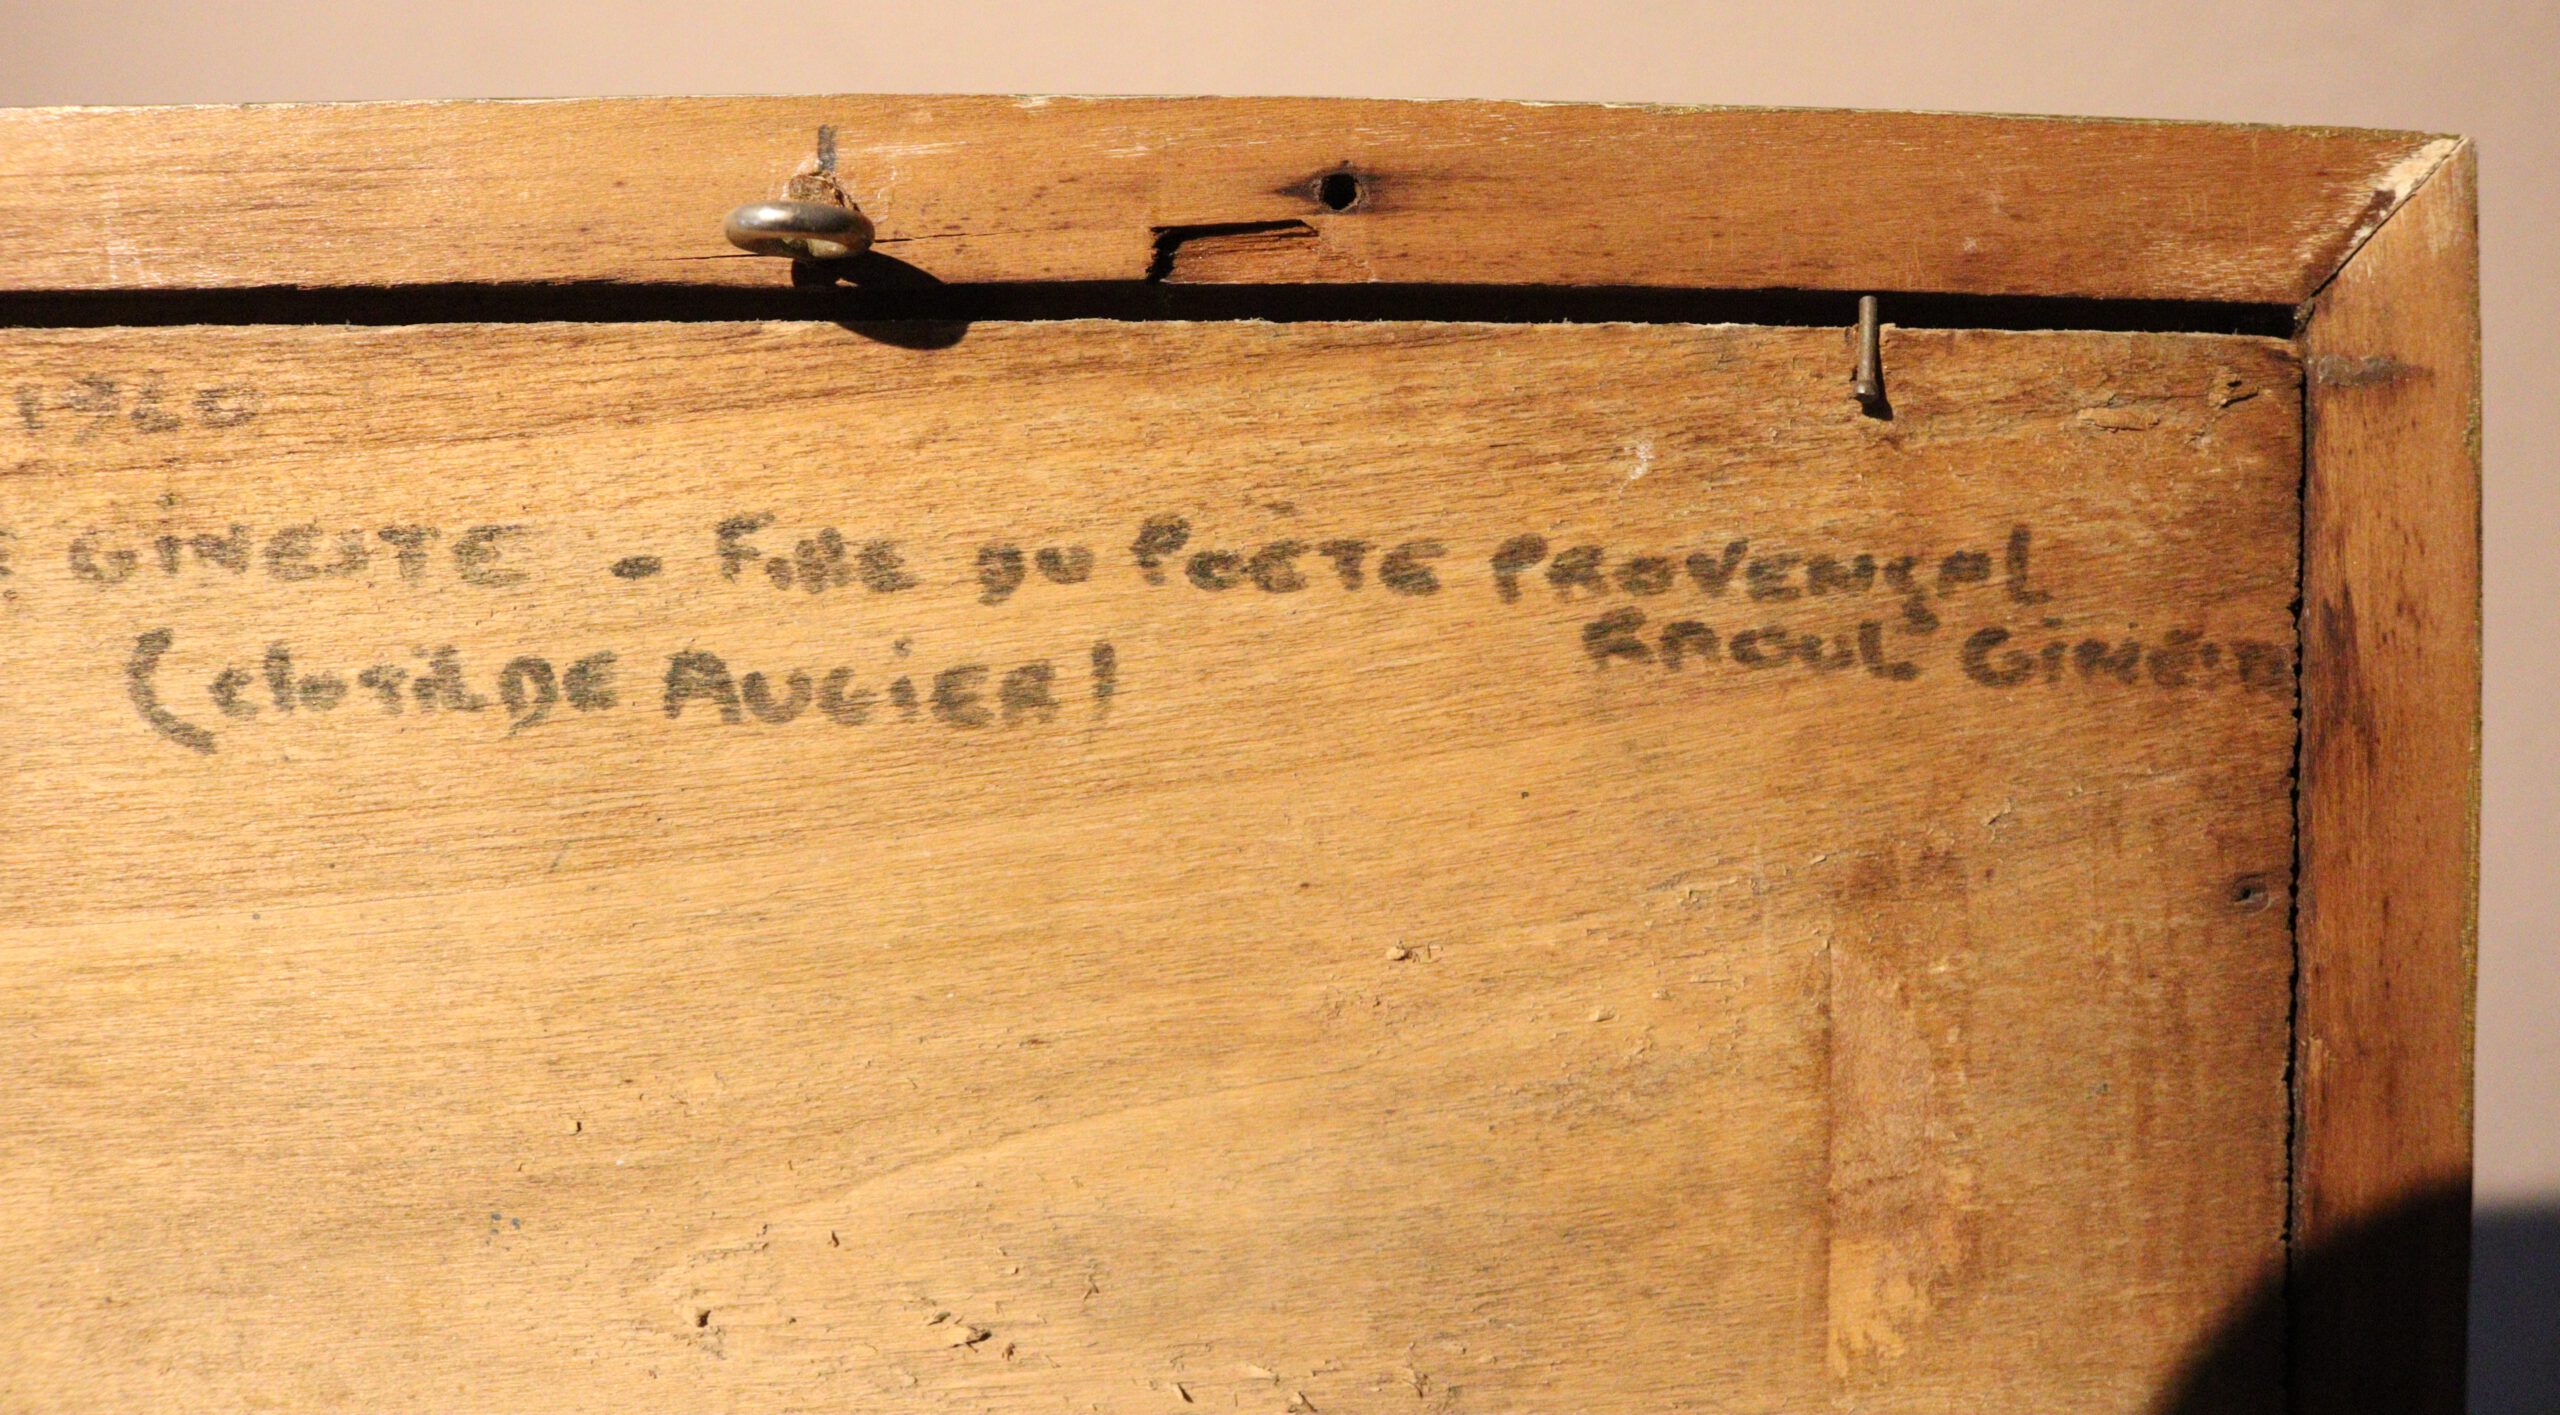 1920
GINESTE - Fille DU POÈTE PROVENÇAL
RAOUL GINEST
(ClOTiLDE AUGiER)